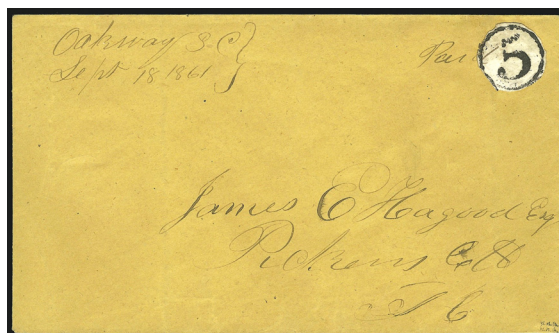 Oakway S.C
Sept 18 1861
Paid
5
James E Hagood Esq
Pickens C H
S C